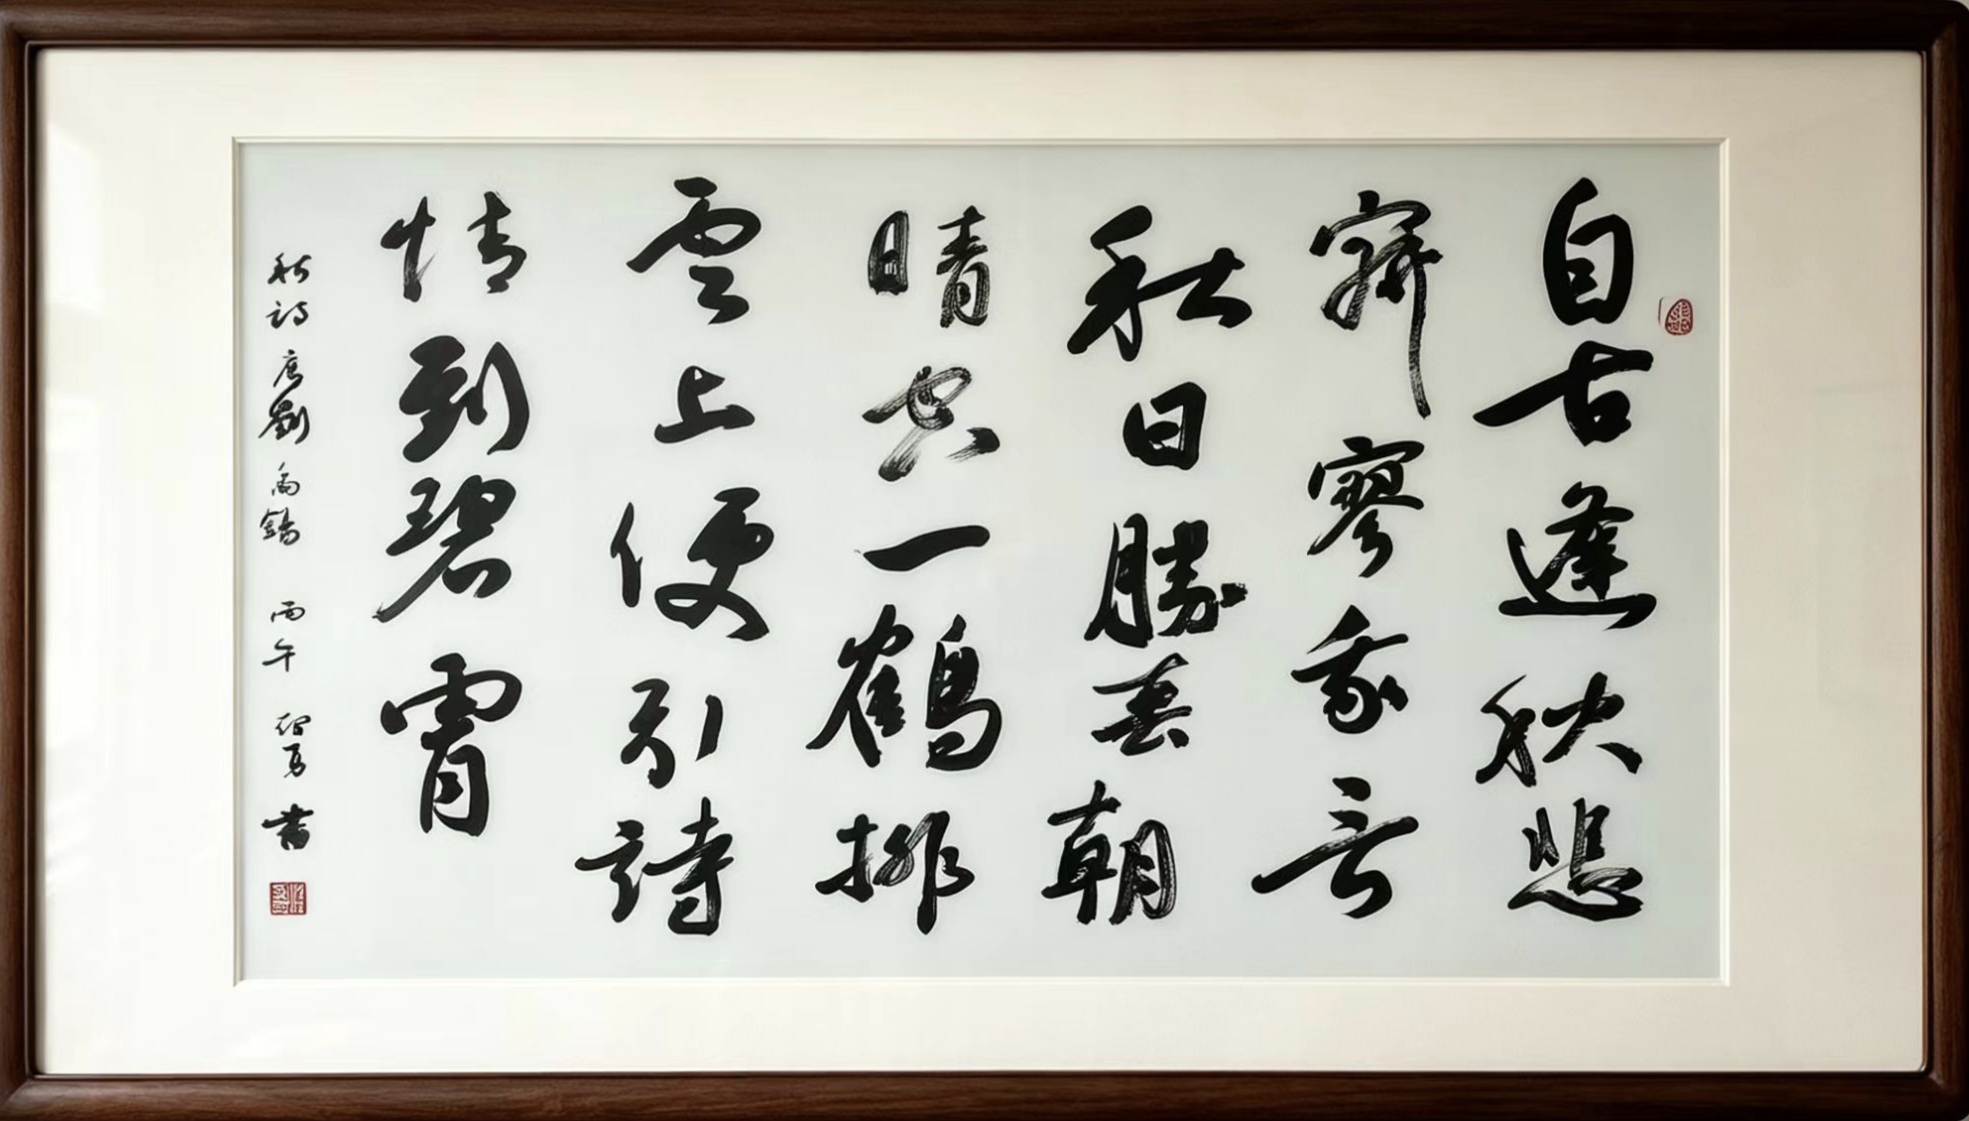 自古逢秋悲
寂寥我言
秋日勝春朝
晴空一鶴排
雲上便引詩
情到碧霄
秋詩 唐劉禹錫 丙午 書